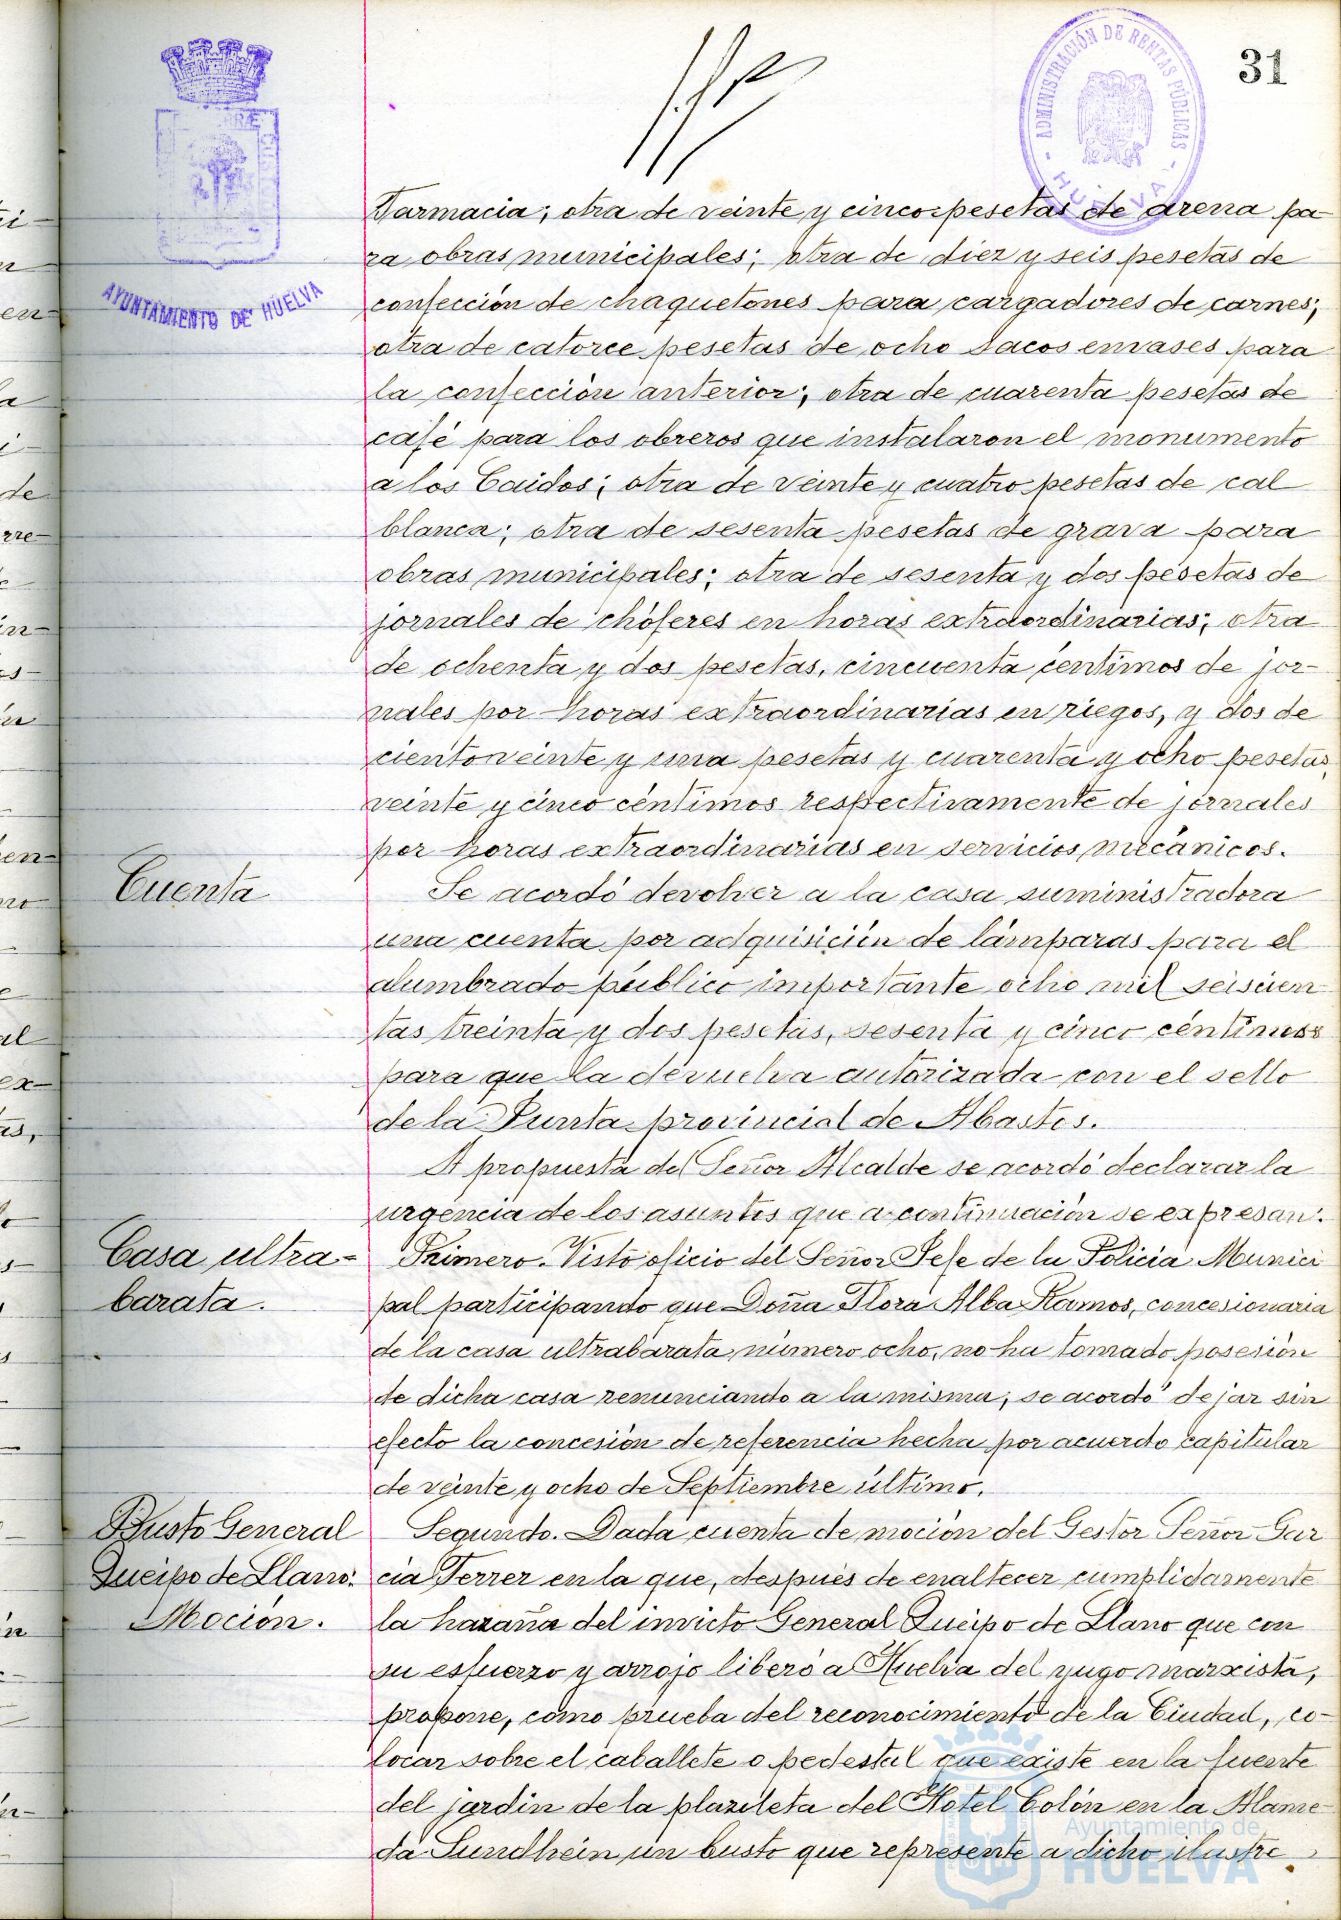 31
ADMINISTRACIÓN DE RENTAS PÚBLICAS
HUELVA
AYUNTAMIENTO DE HUELVA
Farmacia; otra de veinte y cinco pesetas de arena pa-
ra obras municipales; otra de diez y seis pesetas de
confección de chaquetones para cargadores de carnes;
otra de catorce pesetas de ocho sacos envases para
la confección anterior; otra de cuarenta pesetas de
café para los obreros que instalaron el monumento
a los Caidos; otra de veinte y cuatro pesetas de cal
blanca; otra de sesenta pesetas de grava para
obras municipales; otra de sesenta y dos pesetas de
jornales de chóferes en horas extraordinarias; otra
de ochenta y dos pesetas, cincuenta céntimos de jor-
nales por horas extraordinarias en riegos, y dos de
ciento veinte y una pesetas y cuarenta y ocho pesetas,
veinte y cinco céntimos respectivamente de jornales
por horas extraordinarias en servicios mecánicos.
Cuenta
Se acordó devolver a la casa suministradora
una cuenta por adquisición de lámparas para el
alumbrado público importante ocho mil seiscien
tas treinta y dos pesetas, sesenta y cinco céntimos
para que la devuelva autorizada con el sello
de la Junta provincial de Abastos.
A propuesta del Señor Alcalde se acordó declarar la
urgencia de los asuntos que a continuación se expresan:
Casa ultra-
barata.
Primero. Visto oficio del Señor Jefe de la Policia Munici
pal participando que Doña Flora Alba Ramos, concesionaria
de la casa ultrabarata número ocho, no ha tomado posesión
de dicha casa renunciando a la misma; se acordó dejar sin
efecto la concesión de referencia hecha por acuerdo capitular
de veinte y ocho de Septiembre último.
Busto General
Queipo de Llano.
Moción.
Segundo. Dada cuenta de moción del Gestor Señor Gar
cía Ferrer en la que, después de enaltecer cumplidamente
la hazaña del invicto General Queipo de Llano que con
su esfuerzo y arrojo liberó a Huelva del yugo marxista,
propone, como prueba del reconocimiento de la Ciudad, co-
locar sobre el caballete o pedestal que existe en la fuente
del jardin de la plazileta del Hotel Colón en la Alame-
da Sundhein un busto que represente a dicho ilustre
Ayuntamiento de
HUELVA